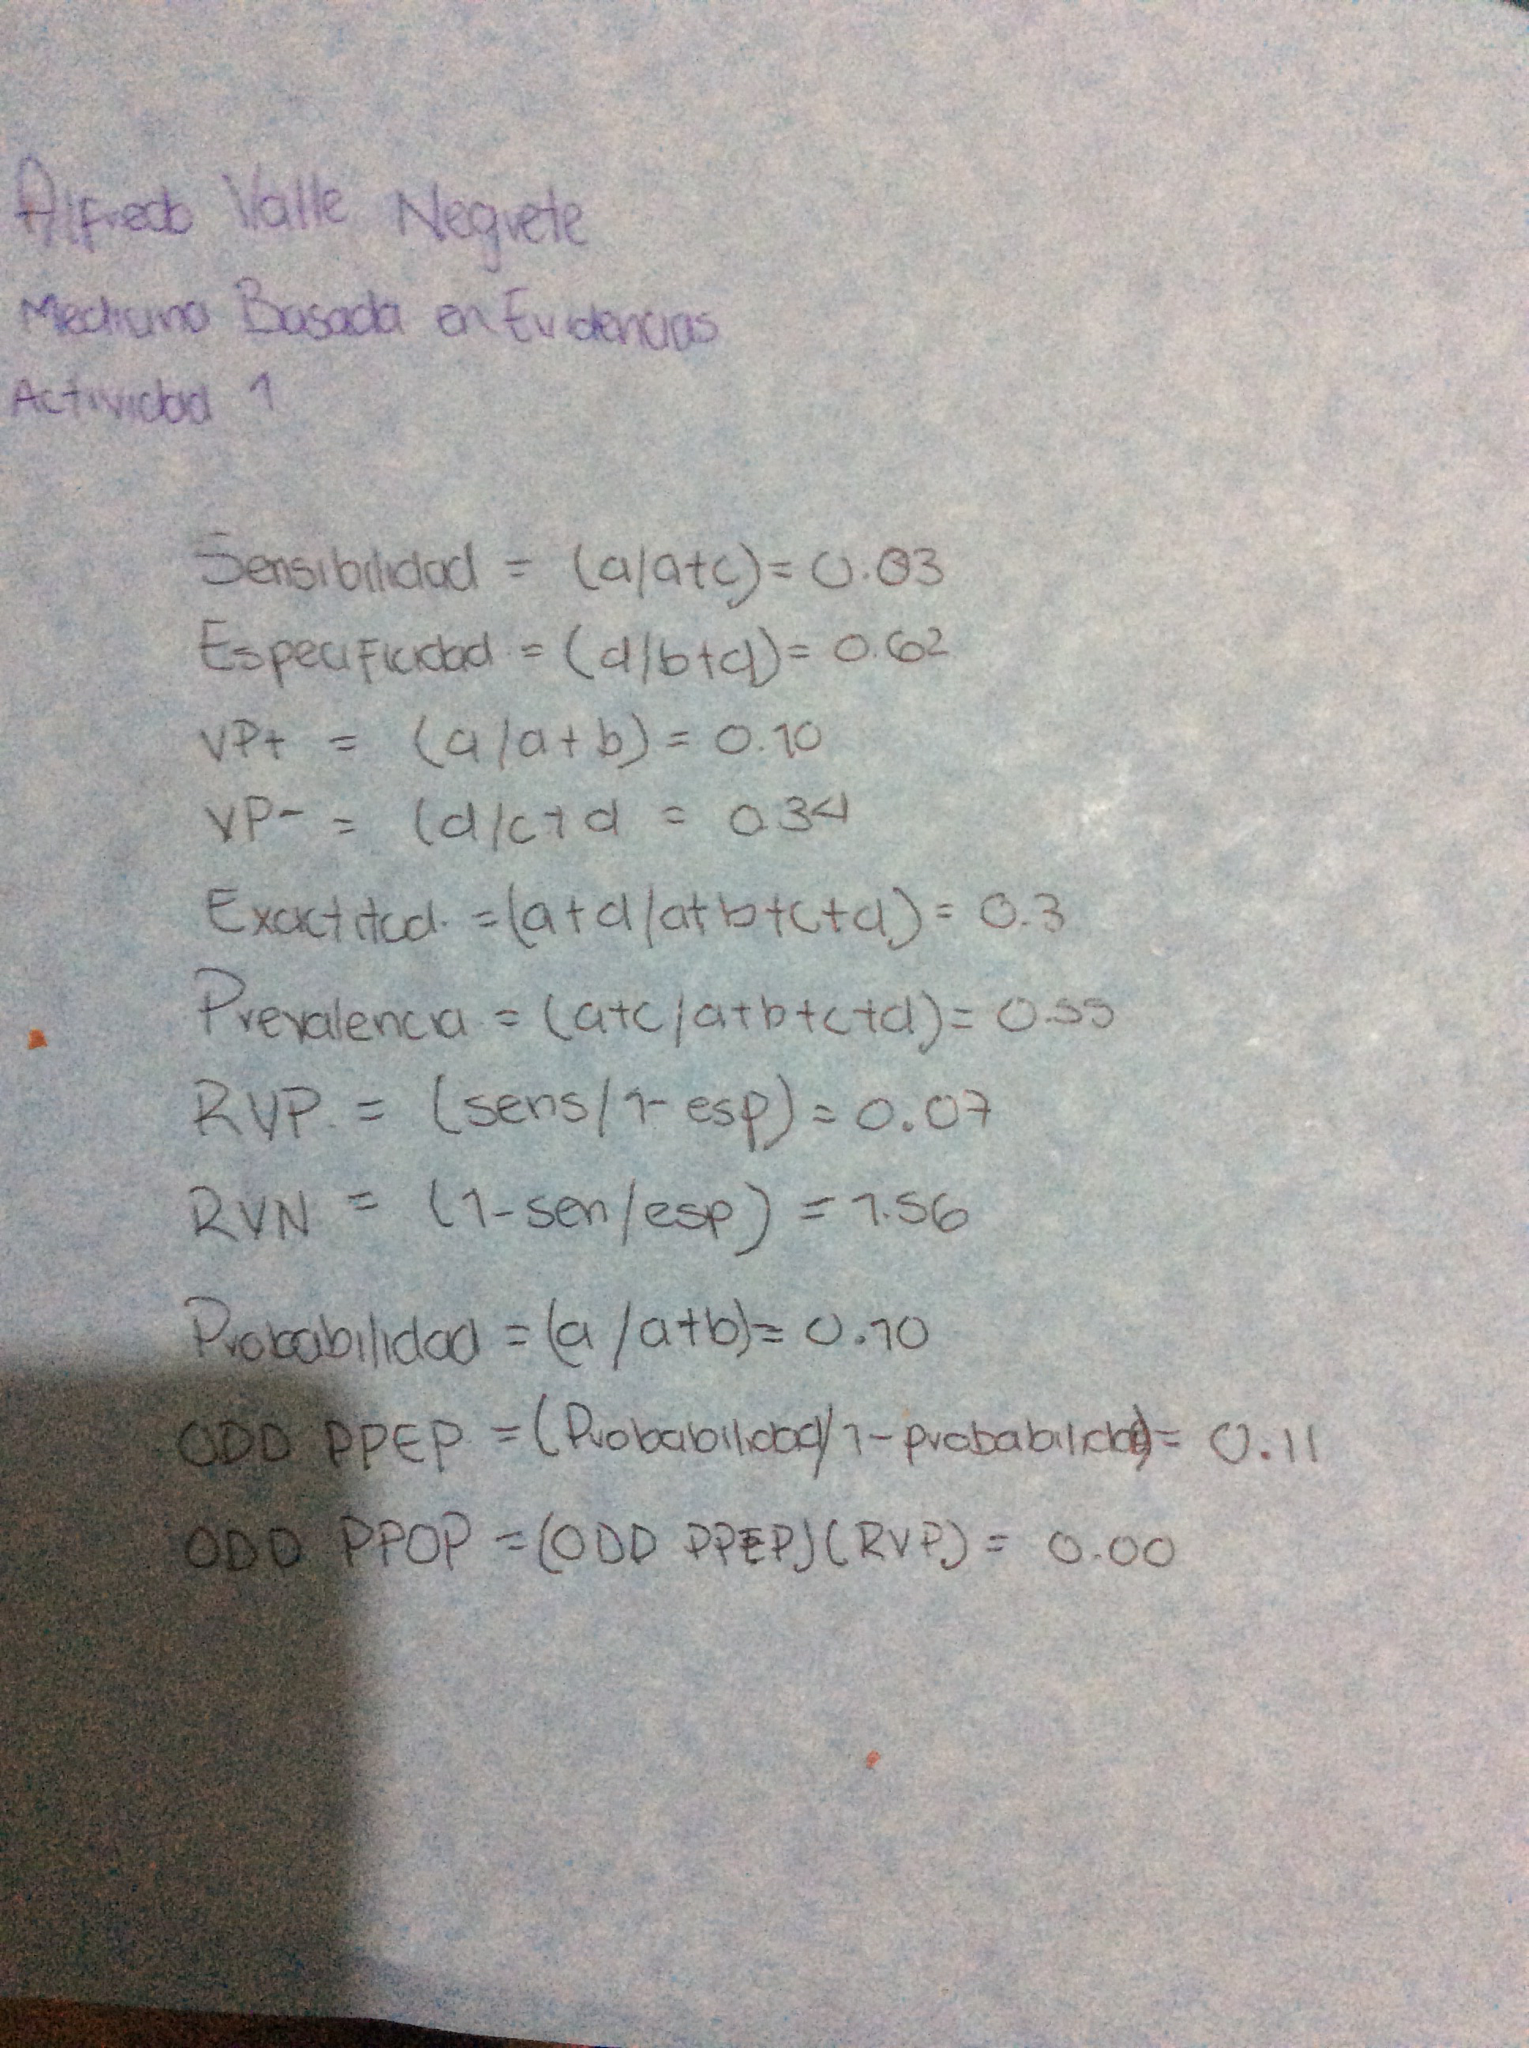 Alfredo Valle Negrete
Medicina Basada en Evidencias
Actividad 1
Sensibilidad = (a/a+c) = 0.03
Especificidad = (d/b+d) = 0.62
VP+ = (a/a+b) = 0.10
VP- = (d/c+d = 0.34
Exactitud = (a+d/a+b+c+d) = 0.3
Prevalencia = (a+c/a+b+c+d) = 0.55
RVP = (sens/1-esp) = 0.07
RVN = (1-sen/esp) = 1.56
Probabilidad = (a/a+b) = 0.10
ODD PPEP = (Probabilidad/1-probabilidad) = 0.11
ODD PPOP = (ODD PPEP)(RVP) = 0.00